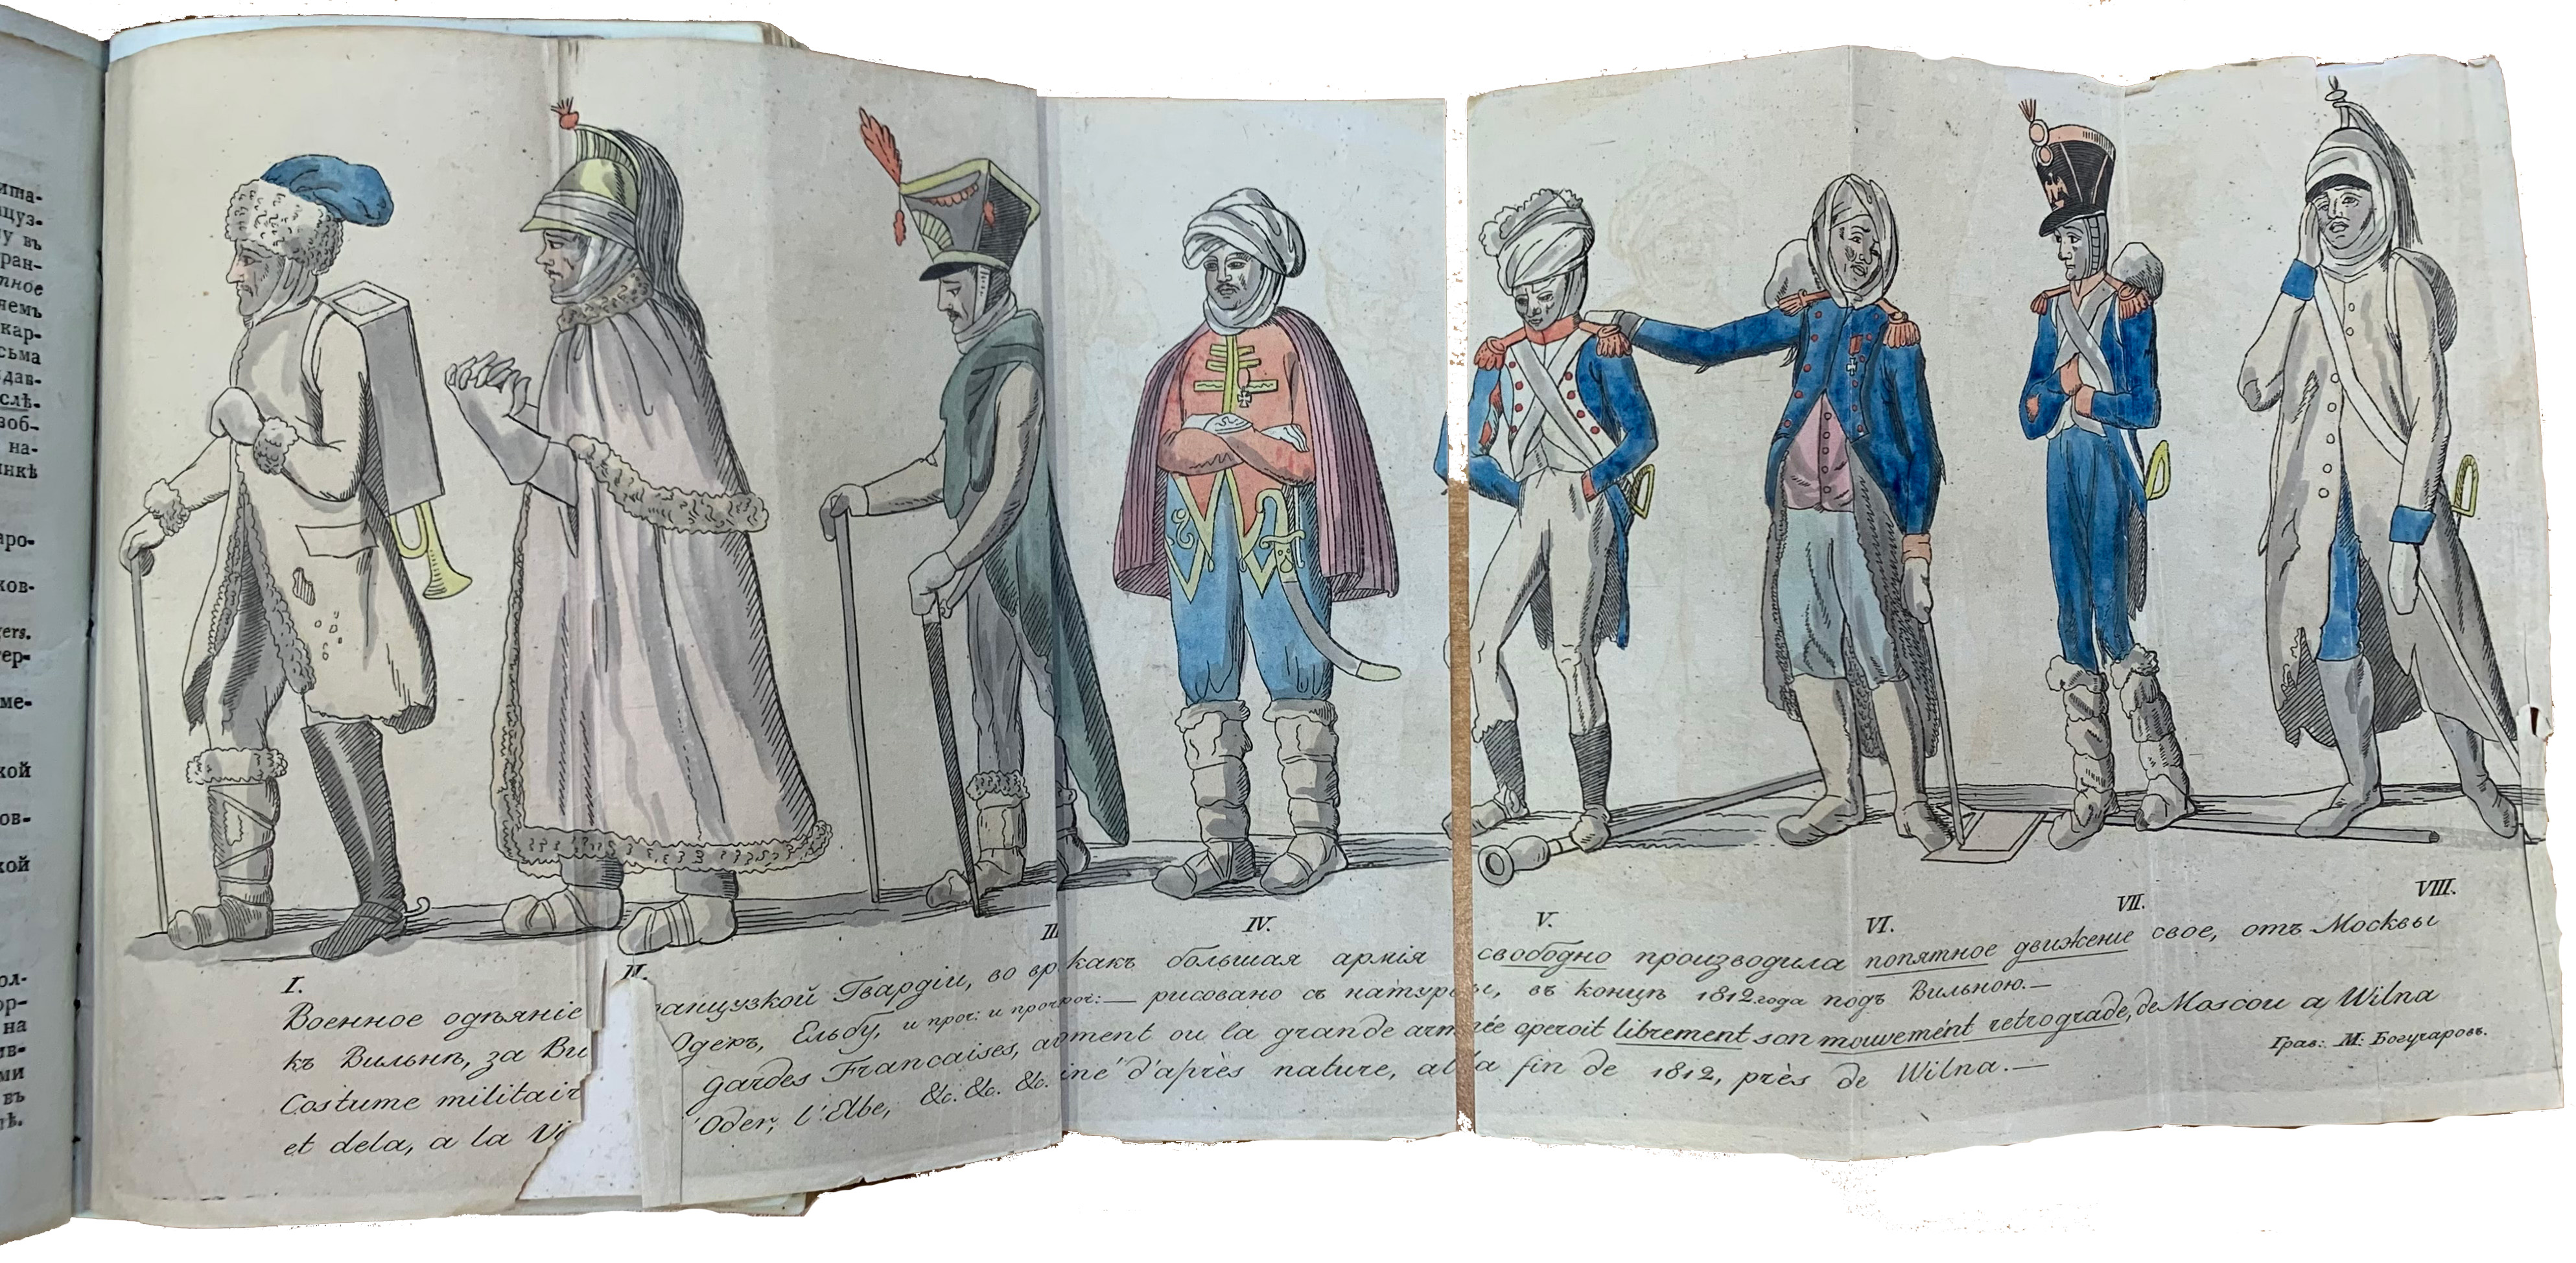 ита-
цуз-
у въ
ран-
тное
яемъ
кар-
сьма
здав-
слѣ-
зоб-
на-
инкѣ
аро-
ков-
ers.
тер-
ме-
кой
ов-
кой
ол-
ор-
на
ив-
ми
въ
ѣ.
I. II. III. IV. V. VI. VII. VIII.
Военное одѣяніе ранцузкой Гвардіи, во вр какъ большая армія свободно производила попятное движеніе свое, отъ Москвы
къ Вильнѣ, за Ви Одеръ, Ельбу, и проч: и проч: — рисовано съ натуры, въ концѣ 1812 года подъ Вильною.—
Costume militair gardes Francaises, au ment ou la grande armée operoit librement son mouvement retrograde, de Moscou a Wilna
et dela, a la Vi 'Oder, l'Elbe, &c. &c. &c. iné d'après nature, a la fin de 1812, près de Wilna.—
Грав: М: Богучаровъ.